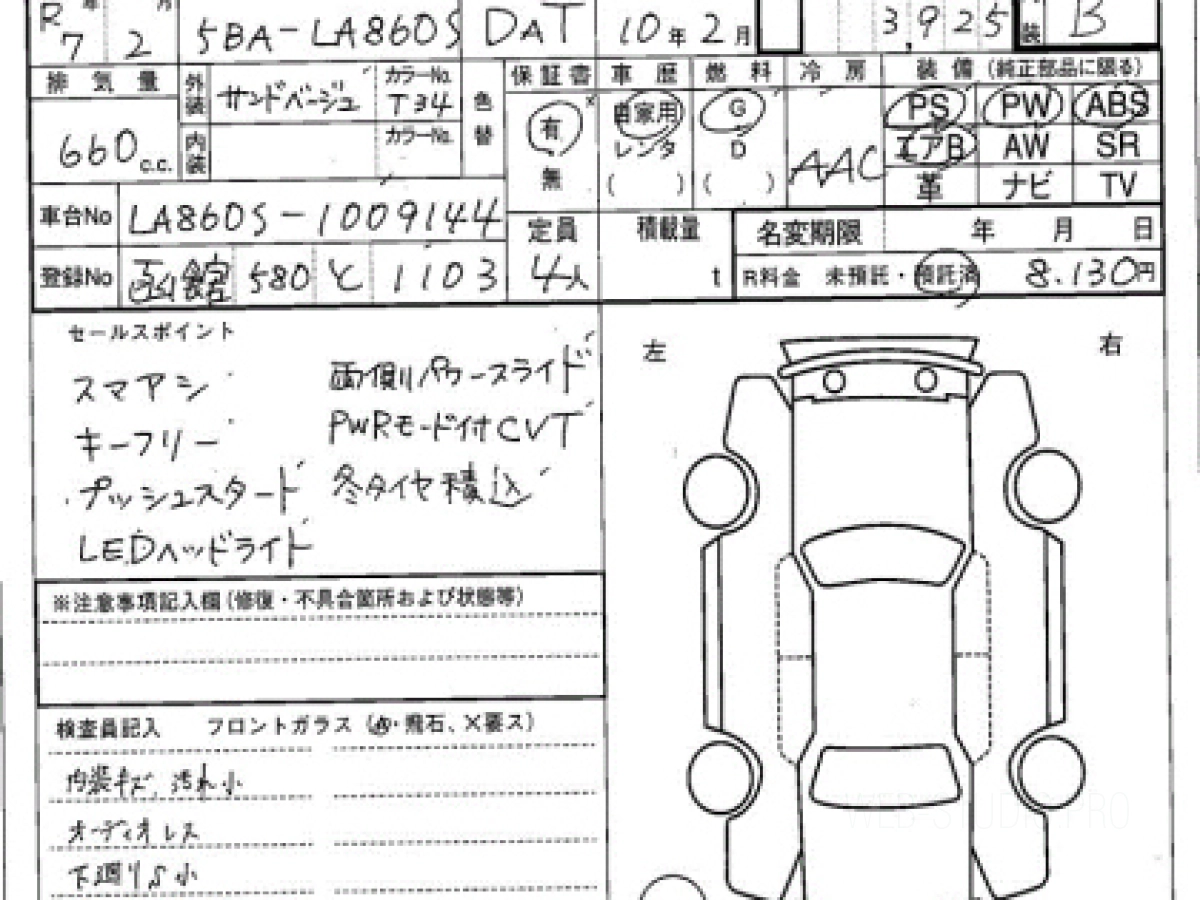 R 7 年 2 月 5BA-LA860S DAT 10年2月 3,925 装 B
排気量 外装 サンドベージュ カラーNo. T34 色替 保証書 車歴 燃料 冷房 装備 (純正部品に限る)
660 c.c. 内装 カラーNo. 有 無 自家用 レンタ ( ) G D ( ) AAC
PS PW ABS
エアB AW SR
革 ナビ TV
車台No LA860S-1009144 定員 積載量 名変期限 年 月 日
登録No 函館 580 と 1103 4人 t R料金 未預託・預託済 8.130円
セールスポイント
スマアシ 両側パワースライド
キーフリー PWRモード付CVT
プッシュスタート 冬タイヤ積込
LEDヘッドライト
左 右
※注意事項記入欄(修復・不具合箇所および状態等)
検査員記入 フロントガラス (A・飛石、X要ス)
内装キズ、汚れ小
オーディオレス
下廻りS小
WEB STUDIO PRO